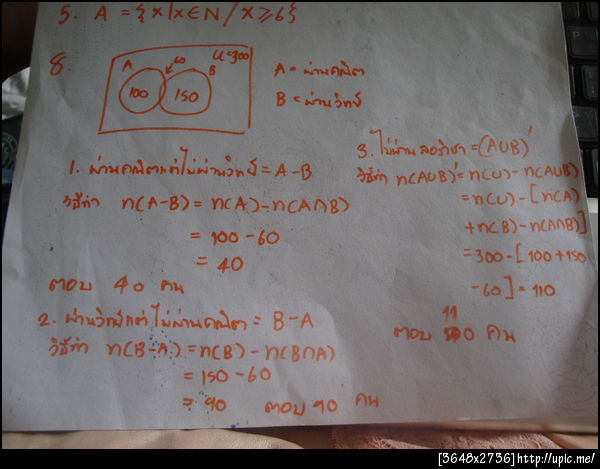 5. A = {x|x∈N / x ≥ 6}
8.
A 60 B U=300
100 150
A = ผ่านคณิตฯ
B = ผ่านวิทย์
1. ผ่านคณิตฯแต่ไม่ผ่านวิทย์ = A-B
วิธีทำ n(A-B) = n(A)-n(A∩B)
= 100-60
= 40
ตอบ 40 คน
2. ผ่านวิทย์แต่ไม่ผ่านคณิตฯ = B-A
วิธีทำ n(B-A) = n(B)-n(B∩A)
= 150-60
= 90 ตอบ 90 คน
3. ไม่ผ่านสองวิชา = (A∪B)'
วิธีทำ n(A∪B)' = n(U)-n(A∪B)
= n(U)-[n(A)
+n(B)-n(A∩B)]
= 300-[100+150
-60] = 110
ตอบ 110 คน
[3648x2736]http://upic.me/